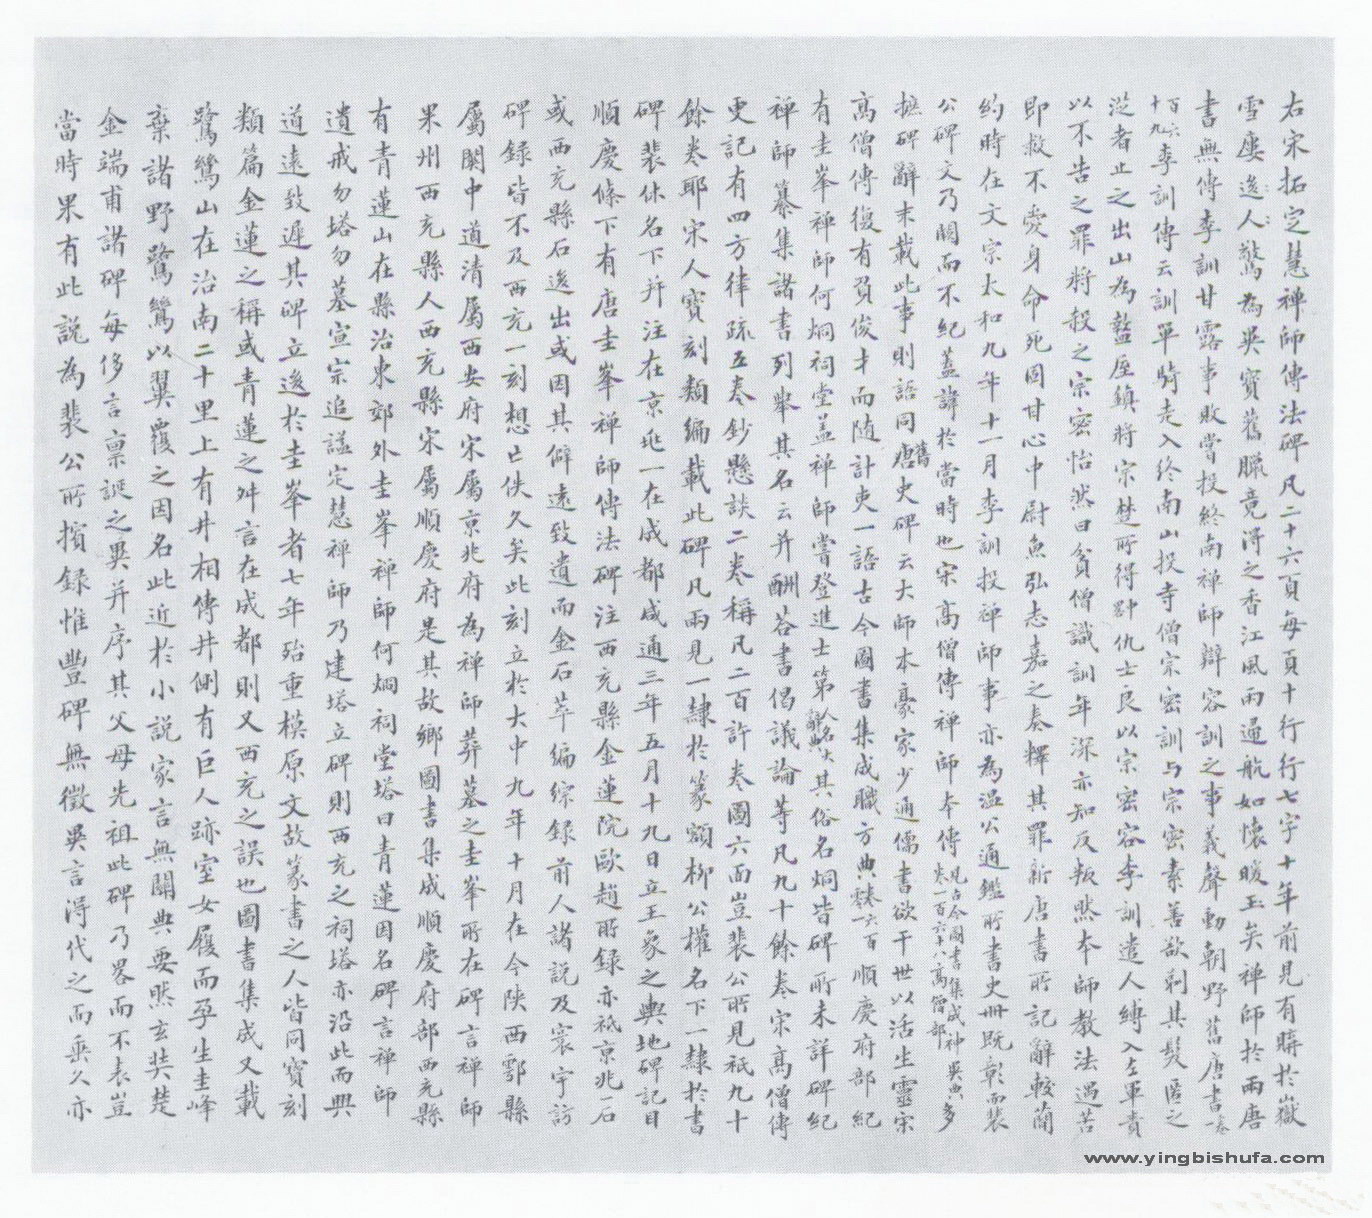 右宋拓定慧禪師傳法碑凡二十六頁每頁十行行七字十年前見有購於嶽
雪廔逡人驚為吳寶舊臘竟得之香江風雨過航如懷暖玉矣禪師於兩唐
書無傳李訓甘露事敗嘗投終南禪師辯容訓之事義聲動朝野舊唐書一卷
百六十九李訓傳云訓單騎走入終南山投寺僧宗密訓與宗密素善欲剃其髮匿之
從者止之出山為盩厔鎮將宗楚所得對仇士良以宗密容李訓遣人縛入左軍責
以不告之罪將殺之宗密怡然曰貧僧識訓年深亦知反叛然本師教法遇苦
即救不愛身命死固甘心中尉魚弘志嘉之奏釋其罪新唐書所記辭較蕑
約時在文宗太和九年十一月李訓投禪師事亦為温公通鑑所書史冊既彰而裴
公碑文乃闕而不紀蓋諱於當時也宋高僧傳禪師本傳見古今圖書集成神異典卷一百六十八高僧部多
摭碑辭末載此事則語同舊唐史碑云大師本豪家少通儒書欲干世以活生靈宋
高僧傳復有負俊才而随計吏一語古今圖書集成職方典六百順慶府部紀
有圭峯禪師何炯祠堂盖禪師嘗登進士第其俗名炯皆碑所未詳碑紀
禪師纂集諸書列舉其名云并酬荅書偈議論等凡九十餘卷宋高僧傳
更記有四方律疏五卷鈔懸談二卷稱凡二百許卷圖六面豈裴公所見衹九十
餘卷耶宋人寶刻類編載此碑凡兩見一隸於篆額柳公權名下一隸於書
碑裴休名下并注在京兆一在成都咸通三年五月十九日立王象之輿地碑記目
順慶條下有唐圭峯禪師傳法碑注西充縣金蓮院歐趙所録亦衹京兆一石
或西充縣石逡出或因其僻遠致遺而金石萃編綜録前人諸説及寰宇訪
碑録皆不及西充一刻想亡佚久矣此刻立於大中九年十月在今陝西鄠縣
屬關中道清屬西安府宋屬京兆府為禪師葬墓之圭峯所在碑言禪師
果州西充縣人西充縣宋屬順慶府是其故鄉圖書集成順慶府部西充縣
有青蓮山在縣治東郊外圭峯禪師何炯祠堂塔曰青蓮因名碑言禪師
遺戒勿塔勿墓宣宗追謚定慧禪師乃建塔立碑則西充之祠塔亦沿此而興
道遠致遲其碑立逡於圭峯者七年殆重模原文故篆書之人皆同寶刻
類篇金蓮之稱或青蓮之舛言在成都則又西充之誤也圖書集成又載
鷟鸑山在治南二十里上有井相傳井側有巨人跡室女履而孕生圭峰
棄諸野鷟鸑以翼覆之因名此近於小説家言無關典要然玄奘楚
金端甫諸碑每侈言稟誕之異并序其父母先祖此碑乃畧而不表豈
當時果有此說為裴公所擯録惟豐碑無徵吳言得代之而乗久亦
www.yingbishufa.com